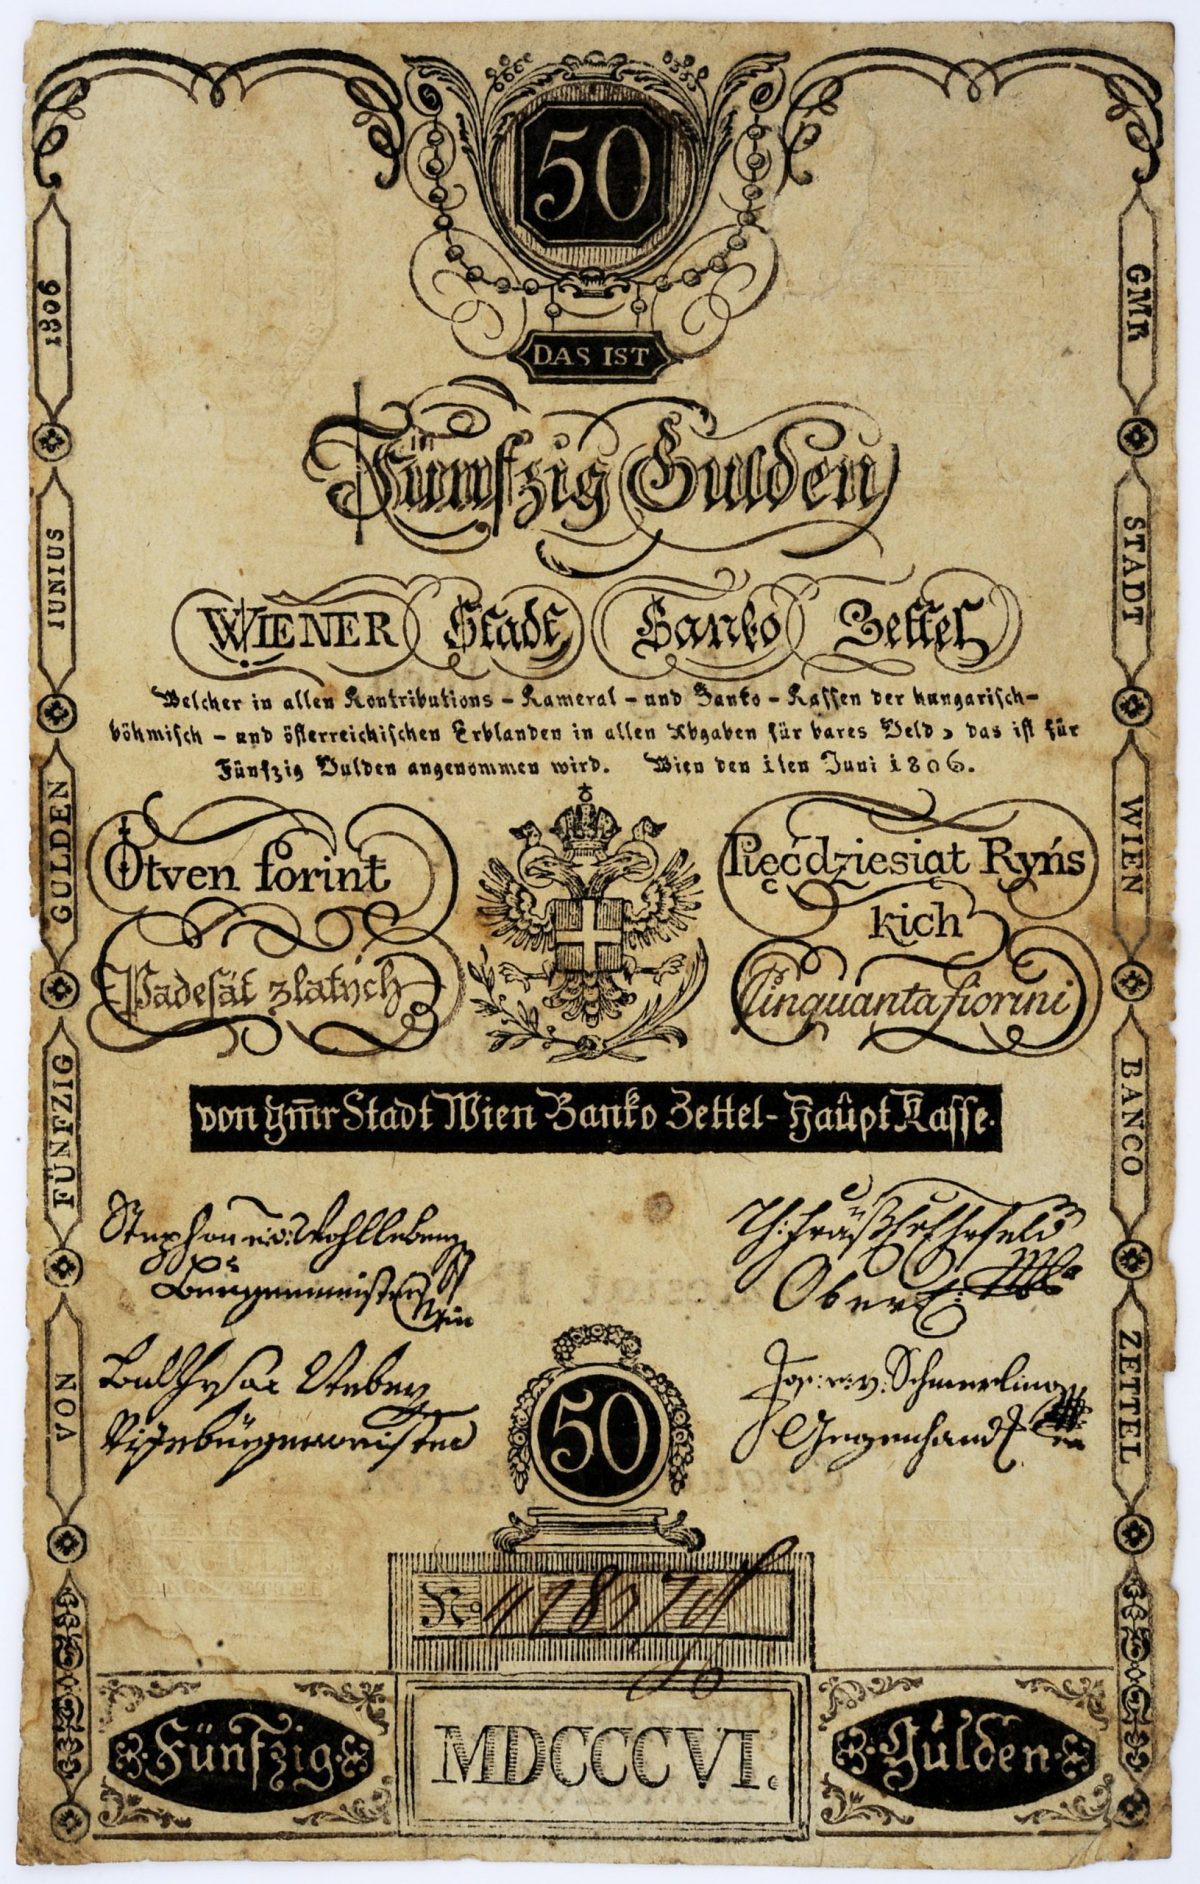 50
DAS IST
Fünfzig Gulden
WIENER Stadt Banko Zettel
Welcher in allen Kontributions - Kameral - und Banko - Kassen der hungarisch-
böhmisch - und österreichischen Erblanden in allen Abgaben für bares Geld, das ist für
Fünfzig Gulden angenommen wird. Wien den 1ten Juni 1806.
Ötven forint
Pięćdziesiąt Ryńs
kich
Padesát zlatých
Cinquanta fiorini
von gm̄r Stadt Wien Banko Zettel-Haupt Kasse.
Stephan E: v: Wohlleben
Bürgermeister
Wien
Vizebürgermeister
Jos: E: v: Schmerling
Gegenhand
50
No
Fünfzig
MDCCCVI.
Gulden
VON FÜNFZIG GULDEN IUNIUS 1806
GMR STADT WIEN BANCO ZETTEL